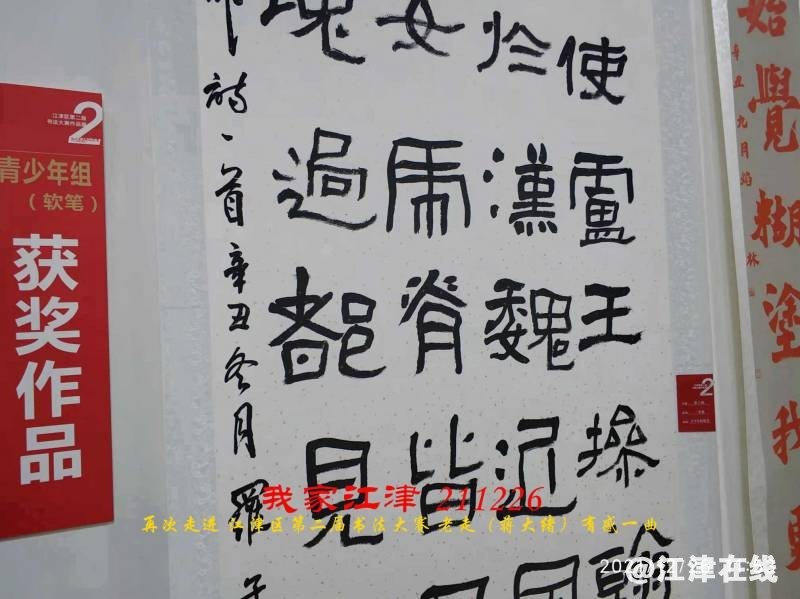 江津区第二届
书法大赛作品展
2
青少年组
（软笔）
获奖作品
始覺糊塗我
辛丑九月
使盧王操翰
於漢魏近
文虎脊皆
塊過都見
詩一首辛丑冬月羅
2
我家江津 211226
再次走进江津区第二届书法大赛 老走（蒋大绪）有感一曲
@江津在线